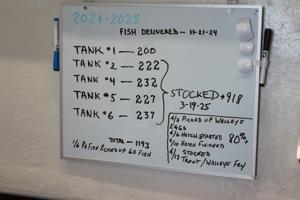 2024-2025
FISH DELIVERED — 11-21-24
TANK #1 — 200
TANK #2 — 222
TANK #4 — 232
TANK #5 — 227
TANK #6 — 237
STOCKED → 918
3-19-25
TOTAL — 1193
PICKED UP 60 FISH
4/2 PICKED UP WALLEYE
EGGS
HATCH STARTED 80%
HATCH FINISHED
STOCKED
4/17 TROUT/WALLEYE FRY